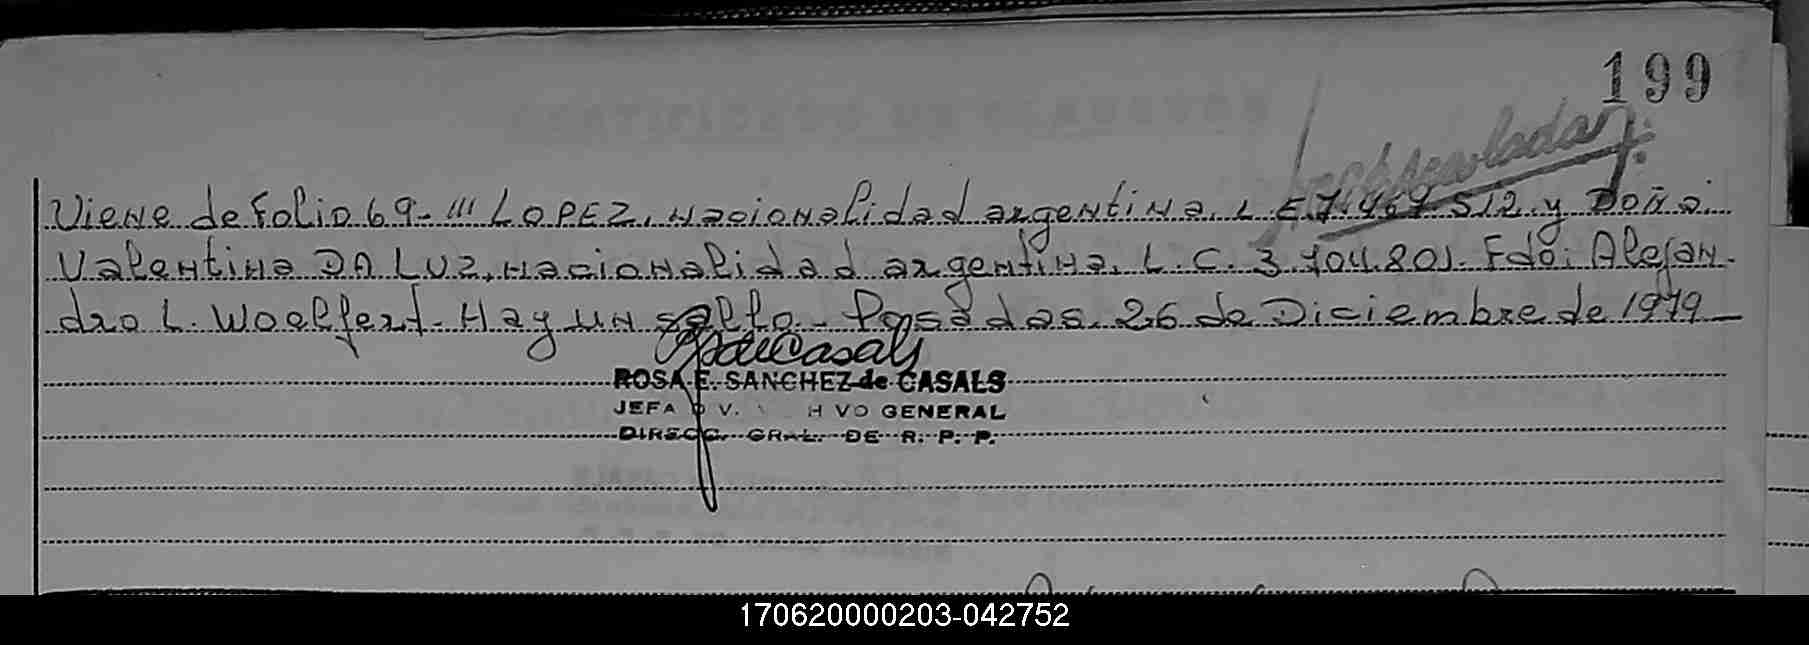 199
Viene de Folio 69- /// LOPEZ, nacionalidad argentina, L E 7.467.512 y Doña
Valentina DA LUZ, nacionalidad argentina, L. C. 3.704.801. Fdo: Alejan-
dro L. Woelfert. Hay un sello. Posadas, 26 de Diciembre de 1979
ROSA E. SANCHEZ de CASALS
JEFA GENERAL
DIRECC. GRAL. DE R. P. P.
170620000203-042752